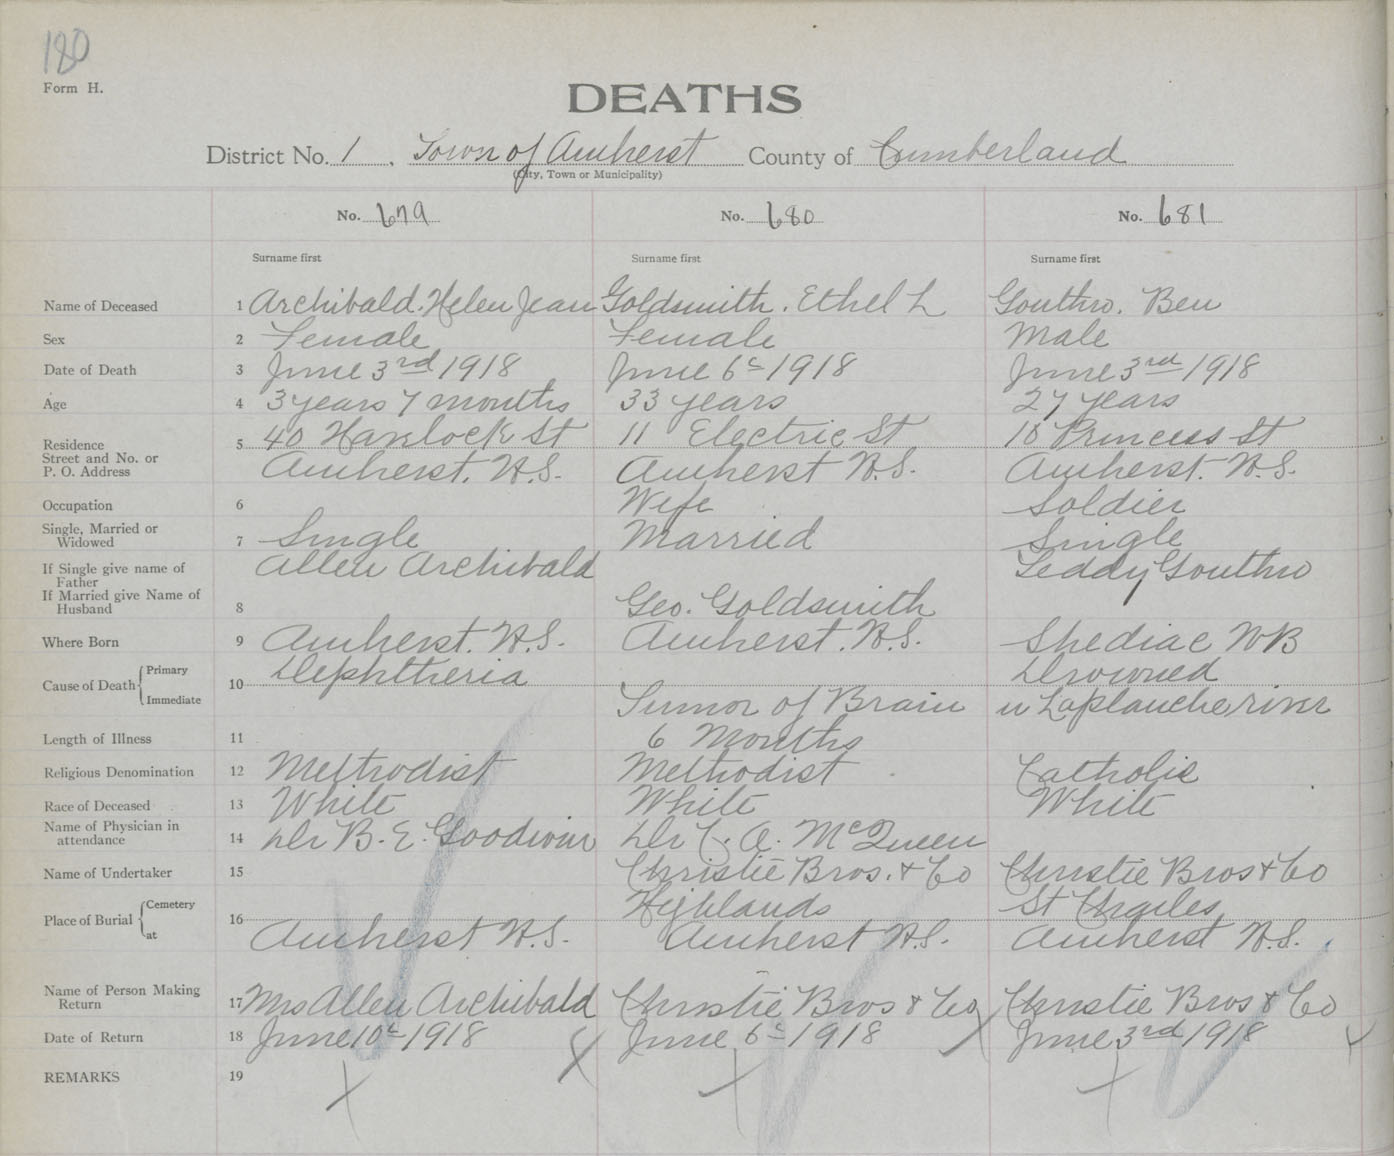 180
Form H.
DEATHS
District No. 1. Town of Amherst County of Cumberland
(City, Town or Municipality)
No. 679 No. 680 No. 681
Surname first Surname first Surname first
Name of Deceased 1 Archibald. Helen Jean Goldsmith. Ethel L Gouthro. Ben
Sex 2 Female Female Male
Date of Death 3 June 3rd 1918 June 6th 1918 June 3rd 1918
Age 4 3 years 7 months 33 years 27 years
Residence 5 40 Havelock St 11 Electric St 18 Princess St
Street and No. or
P. O. Address Amherst. N.S. Amherst N.S. Amherst. N.S.
Occupation 6 Wife Soldier
Single, Married or
Widowed 7 Single Married Single
If Single give name of
Father Allen Archibald Teddy Gouthro
If Married give Name of
Husband 8 Geo. Goldsmith
Where Born 9 Amherst. N.S. Amherst. N.S. Shediac NB
Cause of Death Primary 10 Dephtheria Drowned
Immediate Tumor of Brain in Laplanche river
Length of Illness 11 6 Months
Religious Denomination 12 Methodist Methodist Catholic
Race of Deceased 13 White White White
Name of Physician in
attendance 14 Dr B. E. Goodwin Dr C. A. McQueen
Name of Undertaker 15 Christie Bros. & Co Christie Bros & Co
Place of Burial Cemetery 16 Highlands St Charles
at Amherst N.S. Amherst N.S. Amherst N.S.
Name of Person Making
Return 17 Mrs Allen Archibald Christie Bros & Co Christie Bros & Co
Date of Return 18 June 10th 1918 June 6th 1918 June 3rd 1918
REMARKS 19